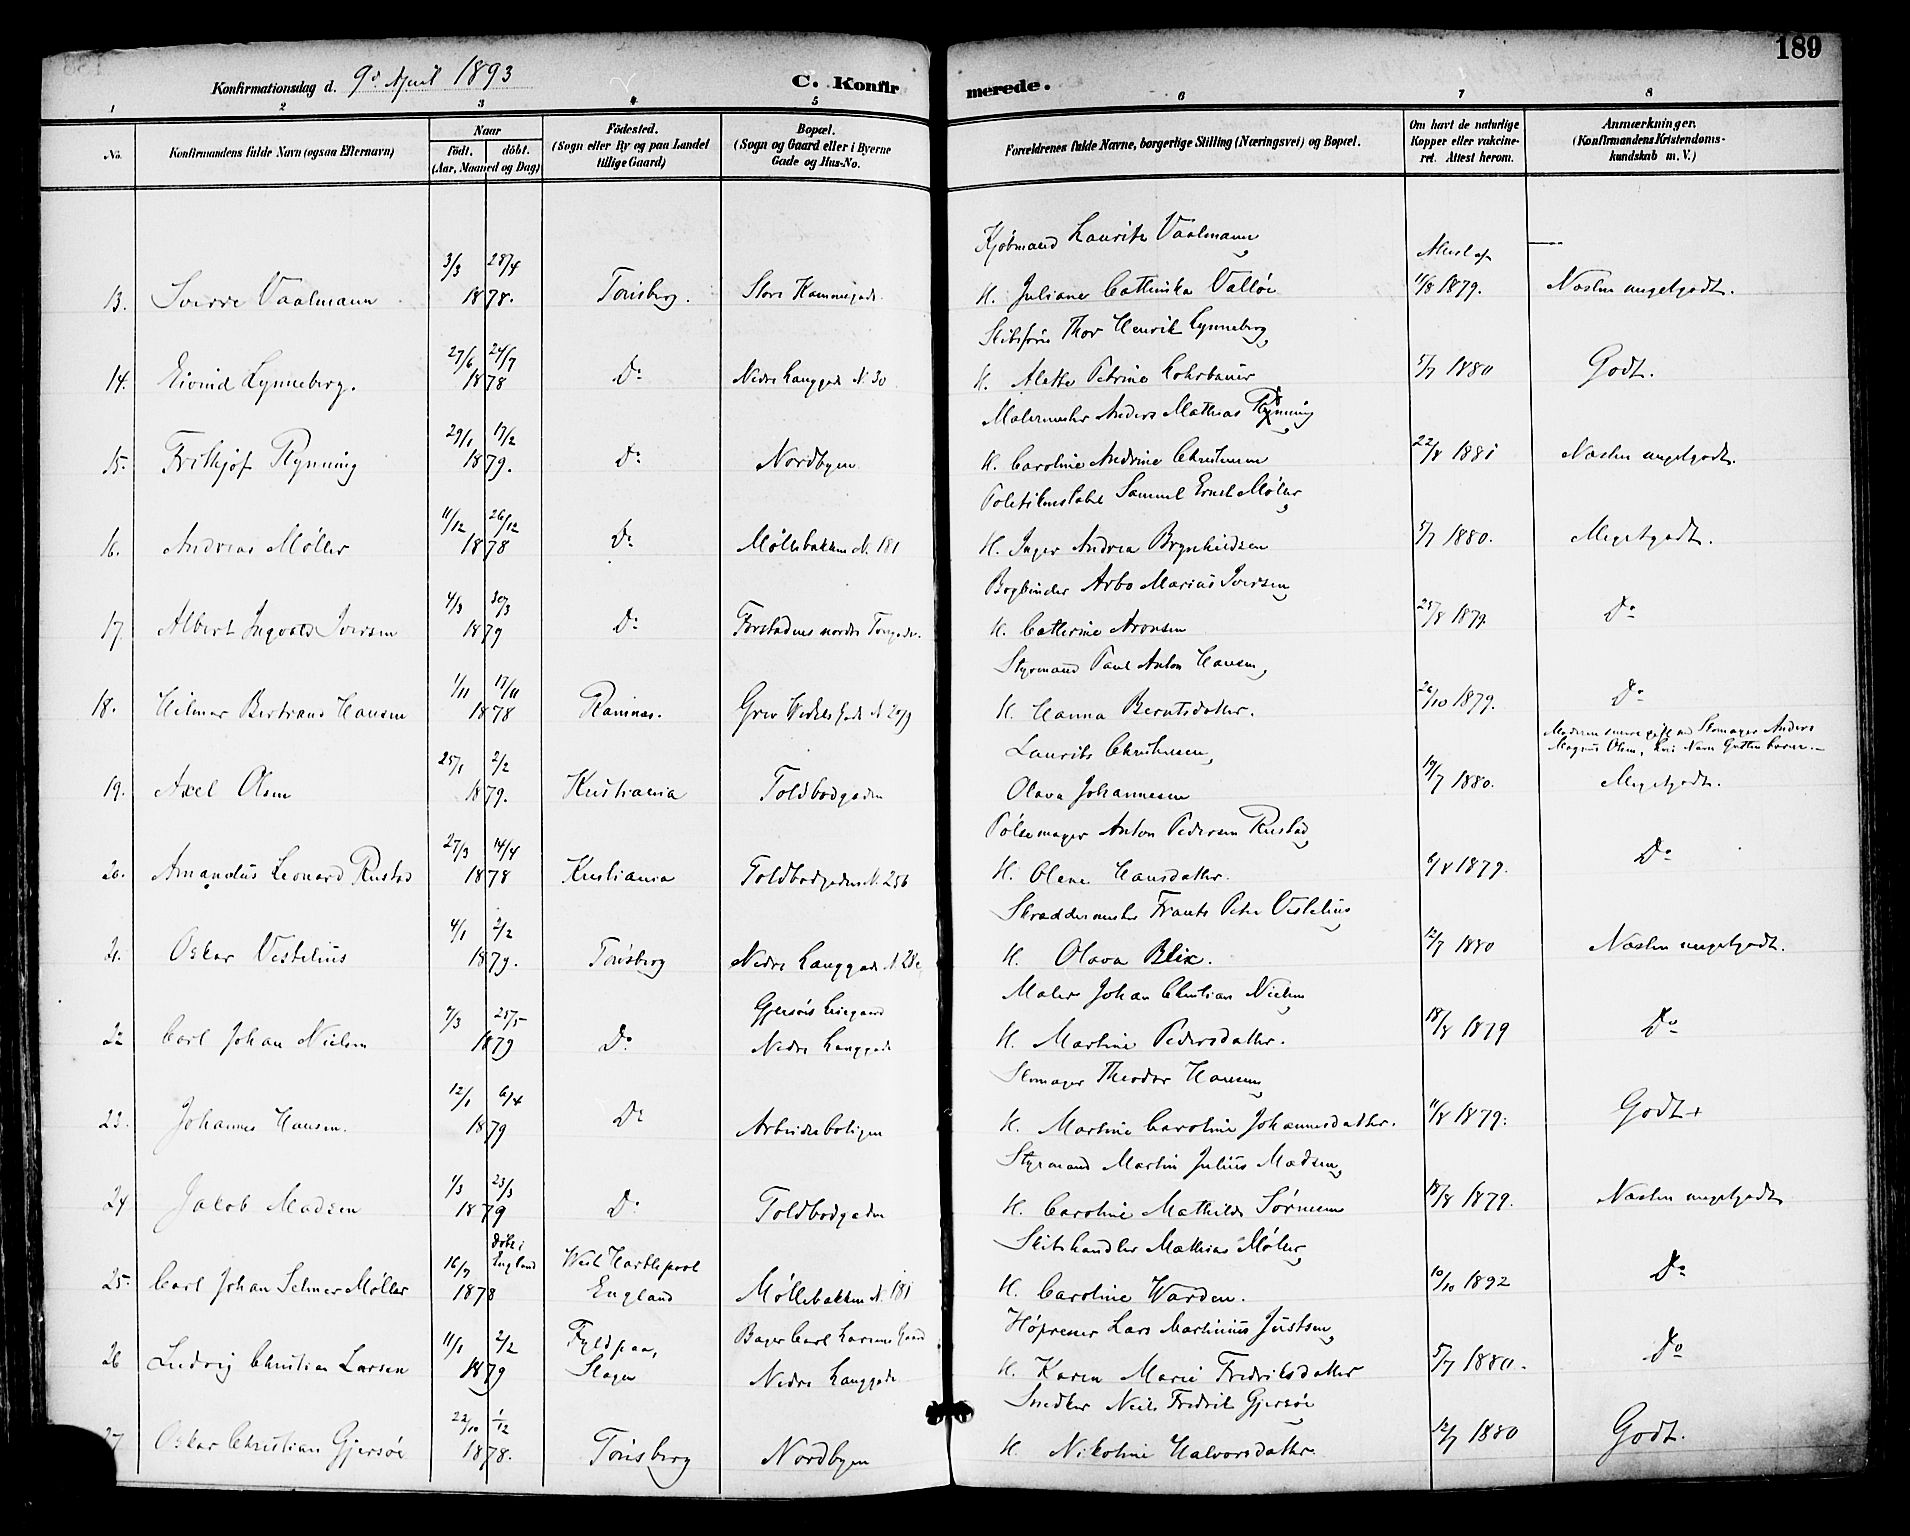 189
Konfirmationsdag d. 9de April 1893
C. Konfirmerede.
1 2 3 4 5 6 7 8
No.
Konfirmandens fulde Navn (ogsaa Efternavn)
Naar
født. døbt.
(Aar, Maaned og Dag)
Fødested.
(Sogn eller By og paa Landet
tillige Gaard)
Bopæl.
(Sogn og Gaard eller i Byerne
Gade og Hus-No.
Forældrenes fulde Navne, borgerlige Stilling (Næringsvei) og Bopæl.
Om havt de naturlige
Kopper eller vakcine-
ret. Attest herom.
Anmærkninger.
(Konfirmandens Kristendoms-
kundskab m. V.)
Kjøbmand Laurits Vaalmann
Attest af
3/3 28/4
13. Sverre Vaalmann 1878. Tønsberg. Store H. Juliane Cathinka Valløe 11/8 1879. Næsten megetgodt.
Skibsfører Thor Henrik Lynneberg
27/6 24/7
14. Eivind Lynneberg. 1878 Do Nedre Langgade N. 30 H. Alette Petrine Lohrbauer 5/7 1880 Godt.
Malermester Anders Mathias Rynning
29/1 17/2
15. Frithjof Rynning 1879. Do Nordbyen H. Caroline Andrine Christensen 22/8 1881 Næsten megetgodt.
Politikonstabel Samuel Ernst Møller
11/12 26/12
16. Andreas Møller 1878 Do Møllebakken N. 181 H. Inger Andrea Brynhildsen 5/7 1880. Megetgodt.
Bogbinder Arbo Marius Iversen
4/3 30/3
17. Albert Ingvald Iversen 1879 Do Forstadens nordre H. Catherine Aronsen 25/8 1879 Do
Styrmand Paul Anton Hansen
1/11 17/11
18. Hilmar Bertrand Hansen 1878 Ramnæs. Grev Wedels Gade N. 209 H. Hanna Berntsdatter. 26/10 1879. Do
Moderen senere gift med Skomager Anders
Magnus Olsen, hvis Navn Gutten bærer.—
Laurits Christensen
25/1 2/2
19. Axel Olsen 1879. Kristiania Toldbodgaden Olava Johannesen 19/7 1880. Megetgodt.
Pølsemager Anton Pedersen Rustad
27/3 14/4
20. Amandus Leonard Rustad 1878 Kristiania Toldbodgaden N. 256 H. Olene Hansdatter. 6/8 1879. Do
Skræddermester Frants Peter Vestelius
4/1 2/2
21. Oskar Vestelius 1879. Tønsberg Nedre Langgade N. 28c H. Olava Blix. 12/7 1880 Næsten megetgodt.
Maler Johan Christian Nielsen
7/3 25/5 Gjersøes Leiegaard
22 Carl Johan Nielsen 1879 Do Nedre Langgade H. Martine Pedersdatter. 18/8 1879 Do
Skomager Theodor Hansen
12/1 6/4
23. Johannes Hansen. 1879 Do Arbeiderboligen H. Martine Caroline Johannesdatter. 11/8 1879. Godt+
Styrmand Martin Julius Madsen
1/3 23/3
24 Jakob Madsen 1879 Do Toldbodgaden H. Caroline Mathilde Sørensen 18/8 1879. Næsten megetgodt
Skibshandler Mathias Møller
16/7 døbt i England West Hartlepool
25. Carl Johan Selmer Møller 1878 England Møllebakken N. 181 H. Caroline Warden. 10/10 1892 Do
Høprener Lars Martinius Justsen
11/1 2/2 Fyldpaa, Bager Carl Larsens Gaard
26 Ludvig Christian Larsen 1879 Slagen Nedre Langgade H. Karen Marie Fredriksdatter 5/7 1880. Do
Snedker Niels Fredrik Gjersøe
22/10 1/12
27 Oskar Christian Gjersøe 1878. Tønsberg Nordbyen H. Nikoline Halvorsdatter 12/7 1880 Godt.